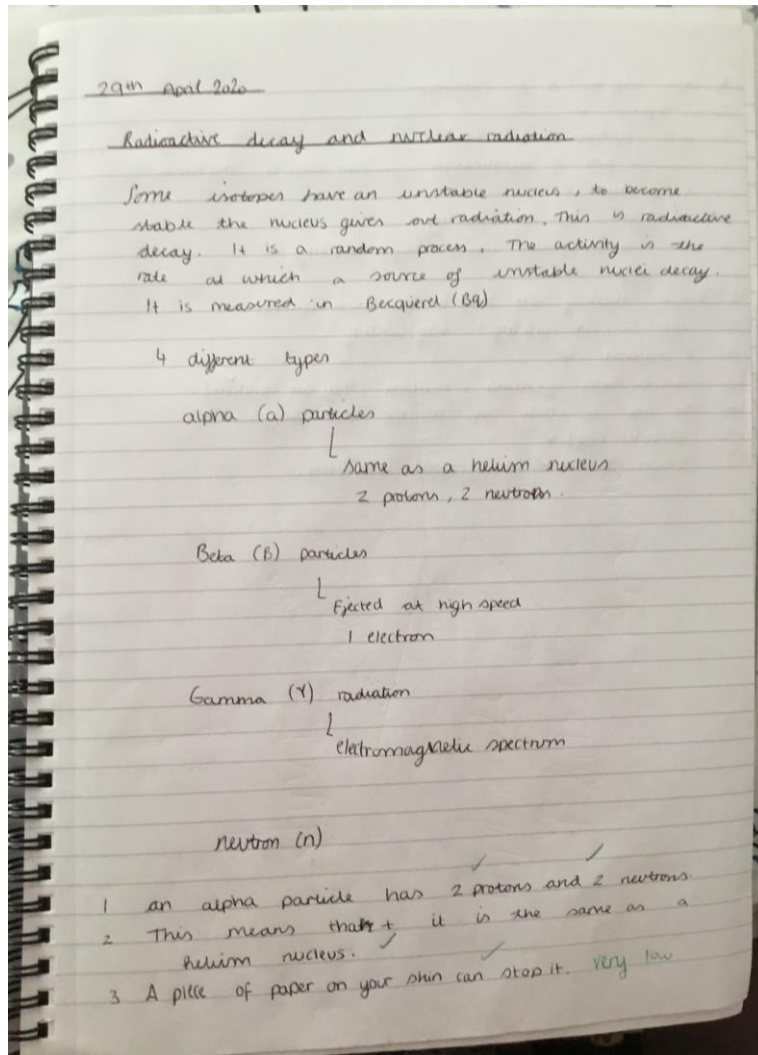 29th April 2020
Radioactive decay and nuclear radiation
Some isotopes have an unstable nucleus, to become
stable the nucleus gives out radiation. This is radioactive
decay. It is a random process. The activity is the
rate at which a source of unstable nuclei decay.
It is measured in Becquerel (Bq)
4 different types
alpha (a) particles
same as a helium nucleus
2 protons, 2 neutrons.
Beta (B) particles
Ejected at high speed
1 electron
Gamma (γ) radiation
electromagnetic spectrum
neutron (n)
1 an alpha particle has 2 protons and 2 neutrons.
2 This means that it is the same as a
helium nucleus.
3 A piece of paper on your skin can stop it. very low